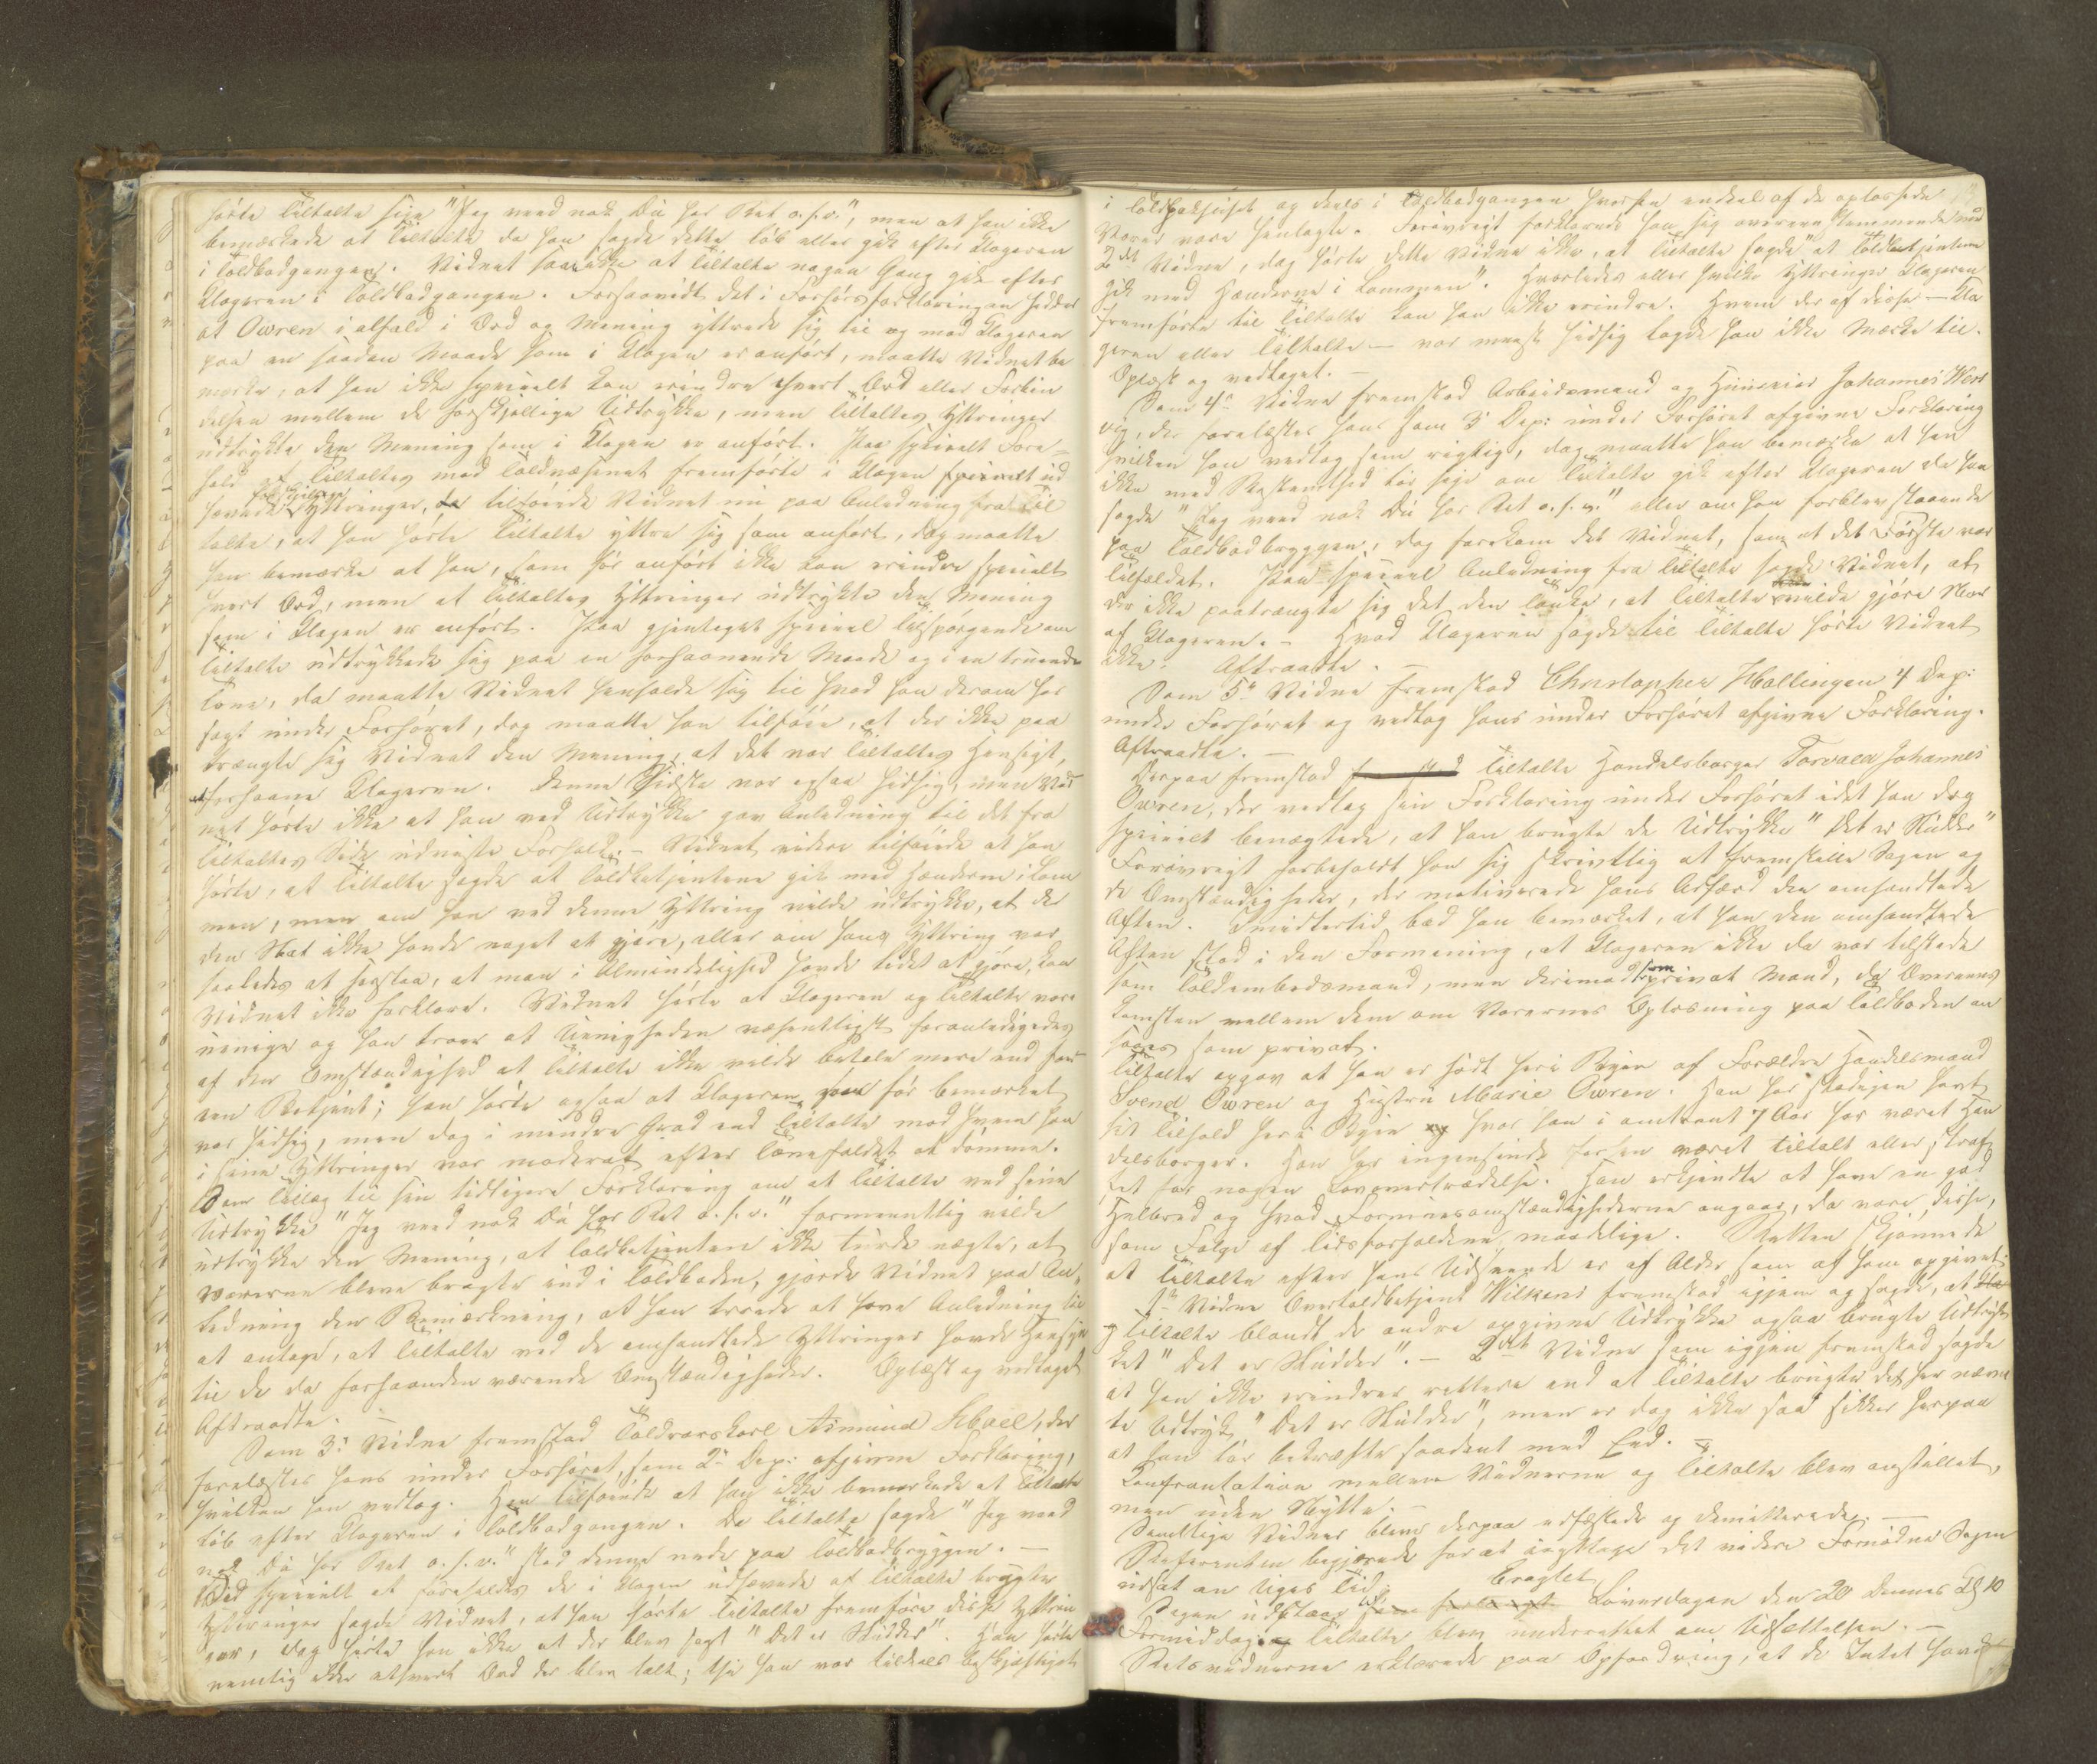 hørte Tiltalte sige "Jeg veed nok Du har Ret o.s.v.", men at han ikke
bemærkede at Tiltalte da han sagde dette løb eller gik efter Klageren
i Toldbodgangen. Vidnet saa ikke at Tiltalte nogen Gang gik efter
Klageren i Toldbodgangen. Forsaavidt det i Forhørsforklaringen hedder
at Owren i alfald i Ord og Mening yttrede sig til og mod Klageren
paa en saadan Maade som i Klagen er anført, maatte Vidnet be
mærke, at han ikke specielt kan erindre hvert Ord eller Forbin
delsen mellem de forskjellige Udtrykke, men Tiltaltes Yttringer
udtrykte den Mening som i Klagen er anført. Paa specielt Fore-
hold af Tiltaltes mod Toldvæsenet fremførte i Klagen specielt ud
hævede forskjellige Yttringer, tilføiede Vidnet nu paa Anledning fra Til
talte, at han hørte Tiltalte yttre sig som anført, dog maatte
han bemærke at han, som før anført ikke kan erindre specielt
hvert Ord, men at Tiltaltes Yttringer udtrykte den Mening
som i Klagen er anført. Paa gjentaget speciel Tilspørgende om
Tiltalte udtrykkede sig paa en forhaanende Maade og i en truende
Tone, da maatte Vidnet henholde sig til hvad han derom har
sagt under Forhøret, dog maatte han tilføie, at der ikke paa
trængte sig Vidnet den Mening, at det var Tiltaltes Hensigt,
at forhaane Klageren. Denne Sidste var ogsaa hidsig, men Vid
net hørte ikke at han ved Udtrykke gav Anledning til det fra
Tiltaltes Side udviste Forhold. – Vidnet videre tilføiede at han
hørte, at Tiltalte sagde at Toldbetjentene gik med Hænderne i Lom
men, men om han ved denne Yttring vilde udtrykke, at de
den Nat ikke havde noget at gjøre, eller om hans Yttring var
saaledes at forstaa, at man i Almindelighed havde lidet at gjøre, kan
Vidnet ikke forklare. Vidnet hørte at Klageren og Tiltalte vare
uenige og han troer at Uenigheden væsentligst foranledigedes
af den Omstændighed at Tiltalte ikke vilde betale mere end for
een Betjent; han hørte ogsaa at Klageren, som før bemærket
var hidsig, men dog i mindre Grad end Tiltalte mod hvem han
i sine Yttringer var moderat efter Tonefaldet at dømme.
Som Tillæg til sin tidligere Forklaring om at Tiltalte ved sine
Udtrykke "Jeg veed nok Du har Ret o.s.v." formeentlig vilde
udtrykke den Mening, at Toldbetjenten ikke turde nægte, at
Varerne bleve bragte ind i Toldboden, gjorde Vidnet paa An-
ledning den Bemærkning, at han troede at have Anledning til
at antage, at Tiltalte ved de omhandlede Yttringer havde Hensyn
til de da forhaanden værende Omstændigheder. Oplæst og vedtaget
Aftraadte. –
Som 3: Vidne fremstod Toldrorskarl Asmund Schael, der
forelæstes hans under Forhøret, som 2: Dep: afgivne Forklaring,
hvilken han vedtog. Han tilføiede at han ikke bemærkede at Tiltalte
løb efter Klageren i Toldbodgangen. Da Tiltalte sagde "Jeg veed
nok Du har Ret o.s.v." stod denne nede paa Toldbodbryggen. –
Ved specielt at foreholdes de i Klagen udhævede af Tiltalte brugte
Yttringer sagde Vidnet, at han hørte Tiltalte fremføre disse Yttrin
ger, dog hørte han ikke at der blev sagt "Det er Skidder". Han hørte
nemlig ikke ethvert Ord der blev talt; thi han var tildels beskjæftiget
i Toldpakhuset og deels i Toldbodgangen hvorhen endeel af de oplossede
Varer vare henlagte. Forøvrigt forklarede han sig overeenstemmende med
2det Vidne, dog hørte dette Vidne ikke, at Tiltalte sagde "at Toldbetjentene
gik med Hænderne i Lommen". Hvorledes eller hvilke Yttringer Klageren
fremførte til Tiltalte kan han ikke erindre. Hvem der af disse – Kla
geren eller Tiltalte – var meest hidsig lagde han ikke Mærke til.
Oplæst og vedtaget. –
Som 4: Vidne fremstod Arbeidsmand og Huuseier Johannes West
vig, der forelæstes hans som 3 Dep: under Forhøret afgivne Forklaring
hvilken han vedtog som rigtig, dog maatte han bemærke at han
ikke med Bestemthed tør sige om Tiltalte gik efter Klageren da han
sagde "Jeg veed nok Du har Ret o.s.v." eller om han forblev staaende
paa Toldbodbryggen, dog forekom det Vidnet, som at det Første var
Tilfældet. Paa speciel Anledning fra Tiltalte sagde Vidnet, at
der ikke paatrængte sig det den Tanke, at Tiltalte vilde gjøre Nar
af Klageren. – Hvad Klageren sagde til Tiltalte hørte Vidnet
ikke. Aftraadte. –
Som 5: Vidne fremstod Christopher Hollingen 4 Dep:
under Forhøret og vedtog hans under Forhøret afgivne Forklaring.
Aftraadte. –
Derpaa fremstod Tiltalte Handelsborger Torvald Johannes
Owren, der vedtog sin Forklaring under Forhøret idet han dog
specielt benægtede, at han brugte de Udtrykke "Det er Skidder"
Forøvrigt forbeholdt han sig skriftlig at fremstille Sagen og
de Omstændigheder, der motiverede hans Adfærd den omhandlede
Aften. Imidlertid bad han bemærket, at han den omhandlede
Aften stod i den Formening, at Klageren ikke da var tilstede
som Toldembedsmand, men derimod som privat Mand, da Overeens
komsten mellem dem om Varernes Oplosning paa Toldboden an
saaes som privat.
Tiltalte opgav at han er født her i Byen af Forældre Handelsmand
Svend Owren og Hustru Marie Owren. Han har stedsen havt
sit Tilhold her i Byen hvor han i omtrent 7 Aar har været Han
delsborger. Han har ingensinde forhen været tiltalt eller straf
fet for nogen Lovovertrædelse. Han erkjendte at have en god
Helbred og hvad Formuesomstændighederne angaar, da vare disse,
som Følge af Tidsforholdene, maadelige. Retten skjønnede
at Tiltalte efter hans Udseende er af Alder som af ham opgivet.
1ste Vidne Overtoldbetjent Wilkens fremstod igjen og sagde, at
Tiltalte blandt de andre opgivne Udtrykke ogsaa brugte Udtryk
ket "Det er Skidder". – 2det Vidne som igjen fremstod sagde
at han ikke erindrer rettere end at Tiltalte brugte det her nævn
te Udtryk "Det er Skidder", men er dog ikke saa sikker herpaa
at han tør bekræfte saadant med Eed. –
Confrontation mellem Vidnerne og Tiltalte blev anstillet,
men uden Nytte. –
Samtlige Vidner bleve derpaa udstedede og demitterede. –
Referenten begjærede for at iagttage det videre Fornødne Sagen
udsat en Uges Tid.
Eragtet
Sagen udstaaer til Løverdagen den 20 dennes Kl 10
Formiddag; Tiltalte blev underrettet om Udsættelsen. –
Retsvidnerne erklærede paa Opfordring, at de Intet havde